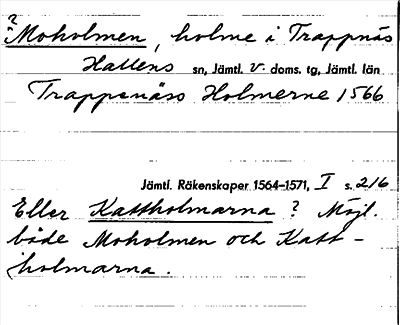 ?
Moholmen, holme i Trappnäs
Hallens sn, Jämtl. v. doms. tg, Jämtl. län
Trappenäss Holmerne 1566
Jämtl. Räkenskaper 1564-1571, I s. 216
Eller Kattholmarna? Möjl.
både Moholmen och Katt-
holmarna.